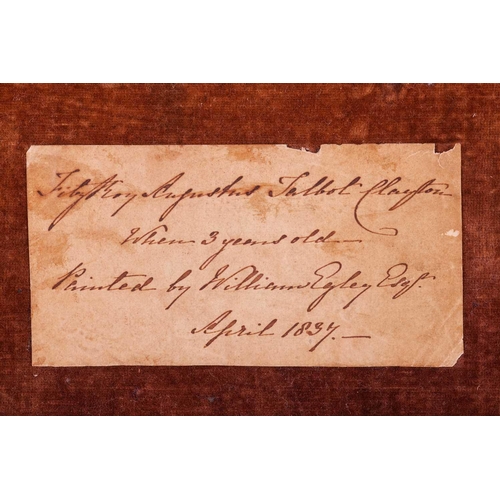 FitzRoy Augustus Talbot Clayton
When 3 years old—
Painted by William Egley Esqr.
April 1837.—